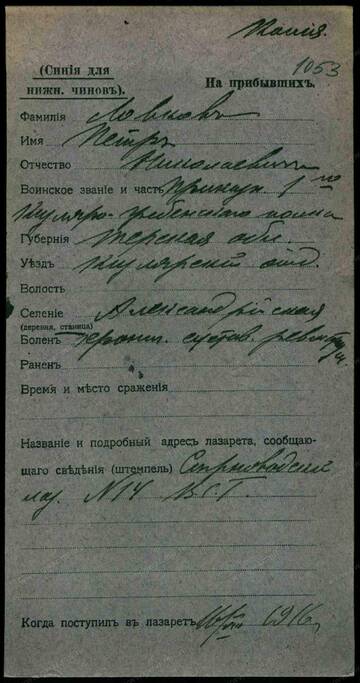 Копия.
1053
(Синія для
нижн. чиновъ).
На прибывшихъ.
Фамилія Ловковъ
Имя Петръ
Отчество Николаевичъ
Воинское званіе и часть 1го
Кизляро-Гребенского полка
Губернія Терская обл.
Уѣздъ Кизлярскій отд.
Волость
Селеніе Александрійская
(деревня, станица)
Боленъ хронич. сустав. ревматизм.
Раненъ
Время и мѣсто сраженія
Названіе и подробный адресъ лазарета, сообщаю-
щаго свѣдѣнія (штемпель)
лаз. N14 В.С.Г.
Когда поступилъ въ лазаретъ 1916